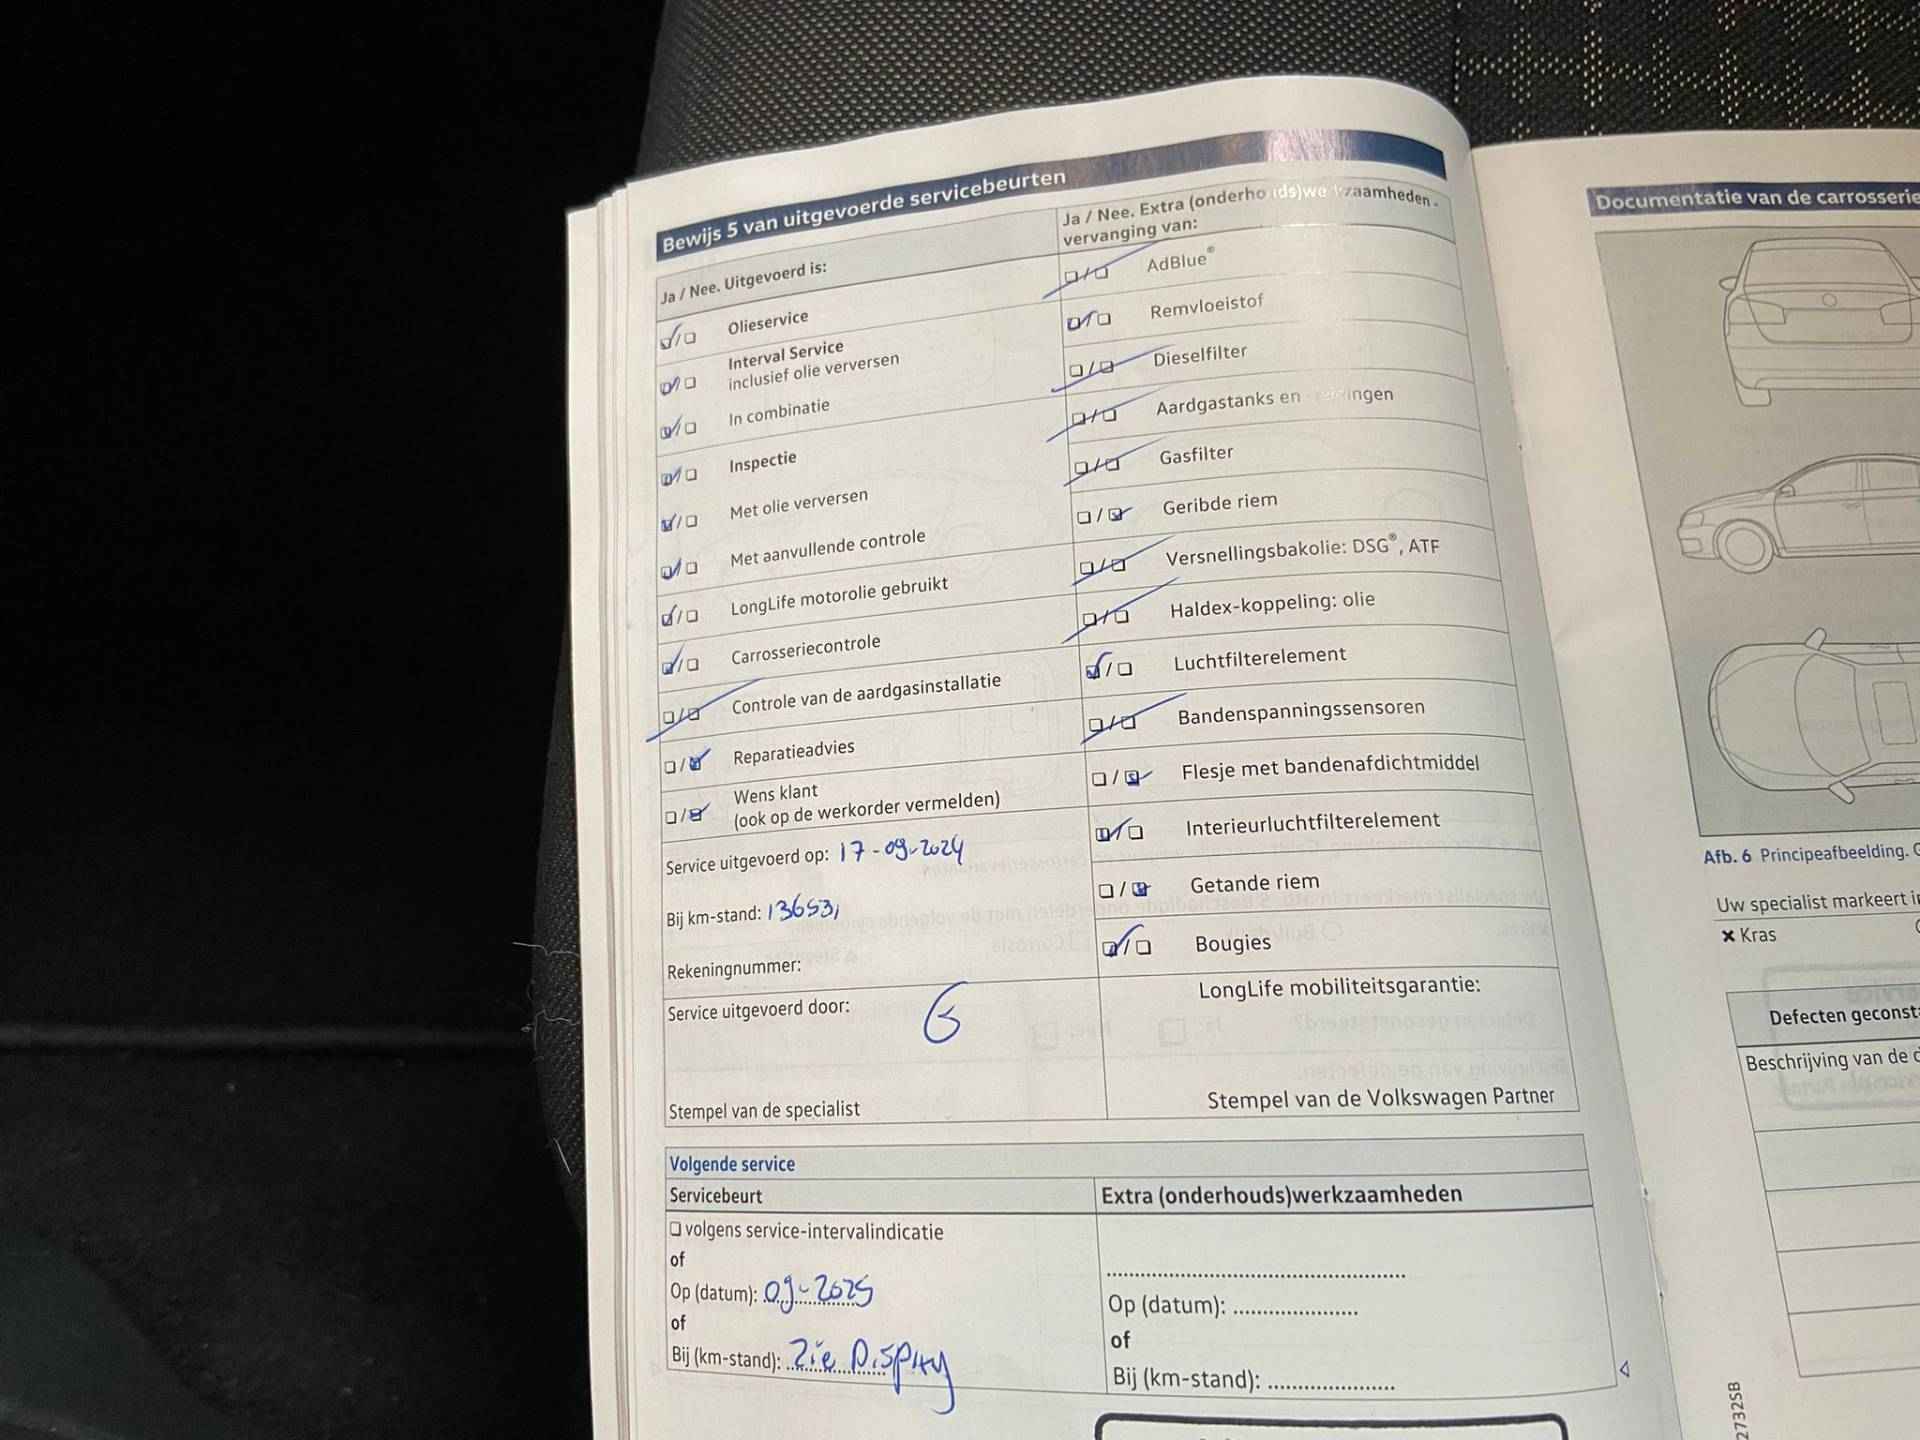 Bewijs 5 van uitgevoerde servicebeurten
Ja / Nee. Uitgevoerd is:
Olieservice
Interval Service
inclusief olie verversen
In combinatie
Inspectie
Met olie verversen
Met aanvullende controle
LongLife motorolie gebruikt
Carrosseriecontrole
Controle van de aardgasinstallatie
Reparatieadvies
Wens klant
(ook op de werkorder vermelden)
Service uitgevoerd op: 17-09-2024
Bij km-stand:
Rekeningnummer:
Service uitgevoerd door:
Stempel van de specialist
Ja / Nee. Extra (onderhouds)werkzaamheden -
vervanging van:
AdBlue®
Remvloeistof
Dieselfilter
Aardgastanks en
Gasfilter
Geribde riem
Versnellingsbakolie: DSG®, ATF
Haldex-koppeling: olie
Luchtfilterelement
Bandenspanningssensoren
Flesje met bandenafdichtmiddel
Interieurluchtfilterelement
Getande riem
Bougies
LongLife mobiliteitsgarantie:
Stempel van de Volkswagen Partner
Volgende service
Servicebeurt
volgens service-intervalindicatie
of
Op (datum): 09-2025
of
Bij (km-stand): Zie Display
Extra (onderhouds)werkzaamheden
Op (datum): ....................
of
Bij (km-stand): ....................
Documentatie van de carrosserie
Afb. 6 Principeafbeelding.
Uw specialist markeert
Kras
Defecten
Beschrijving van de
27325B